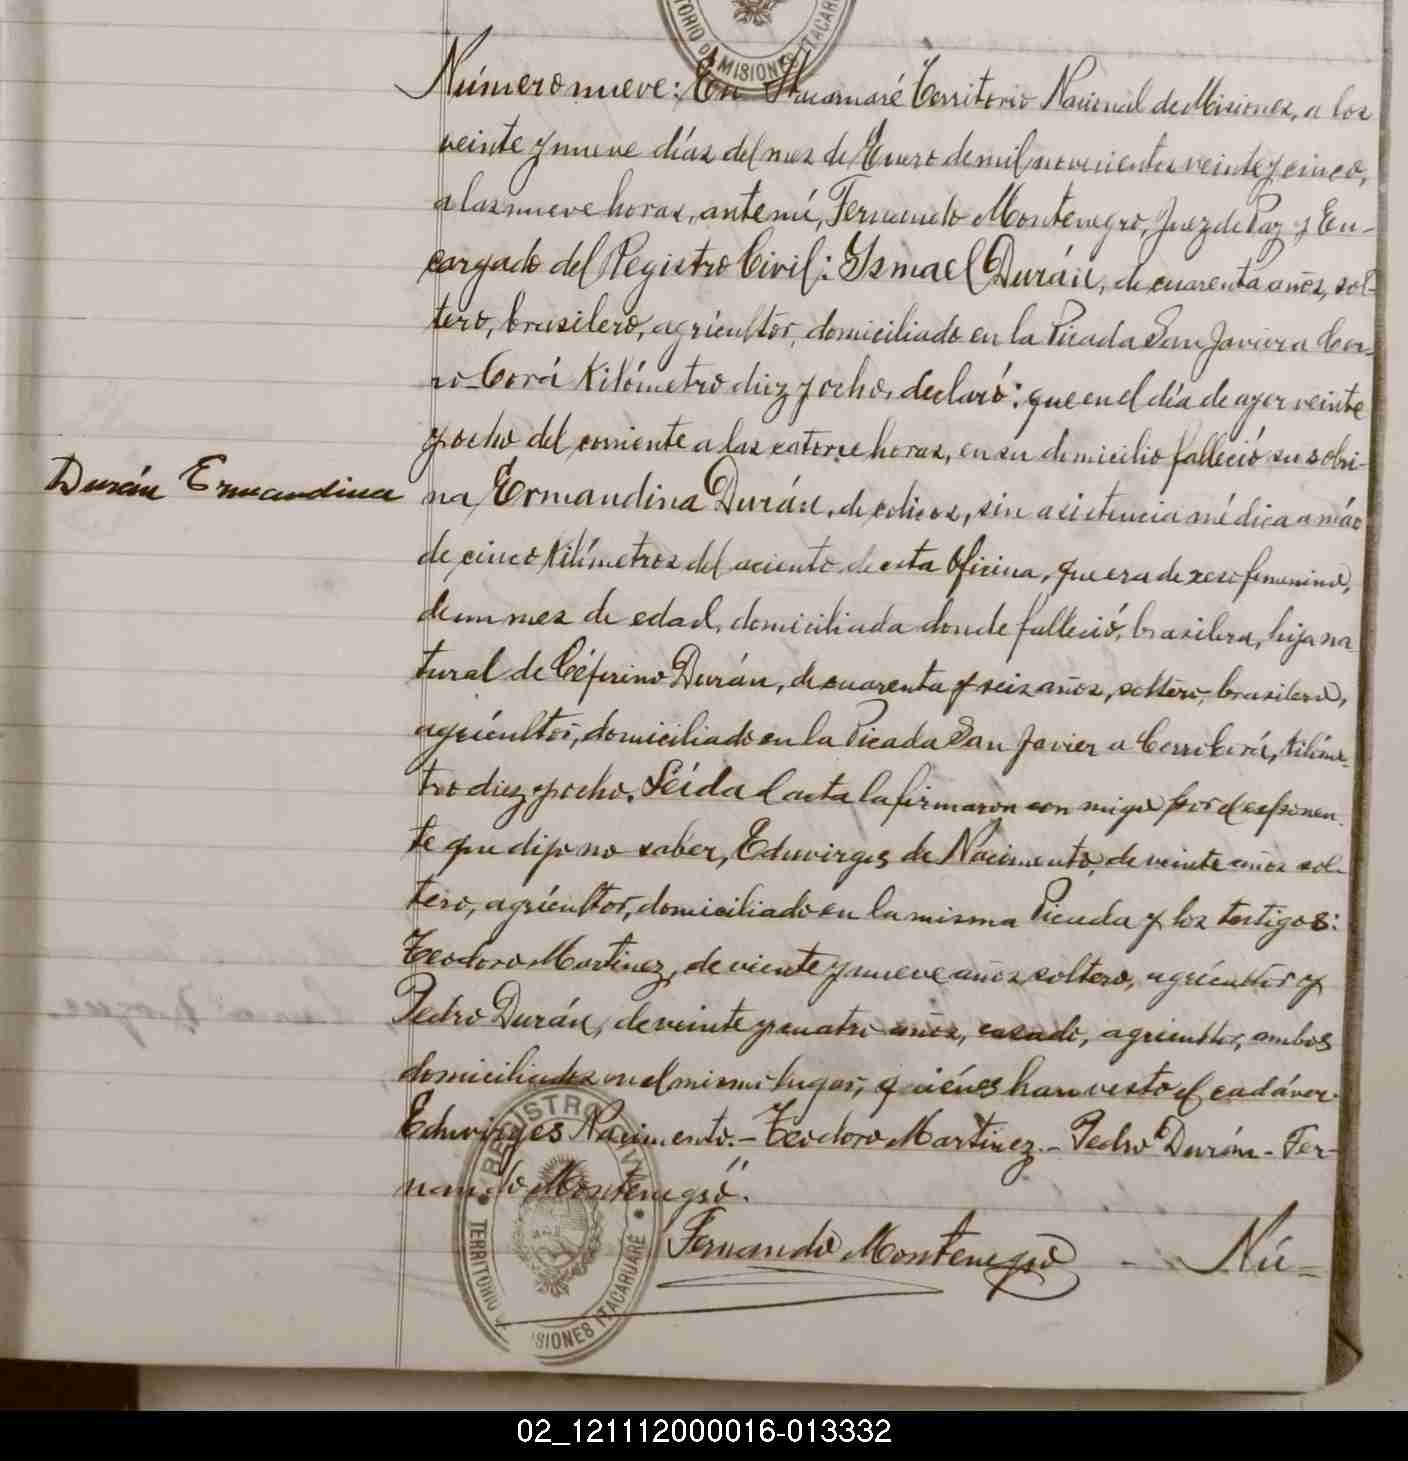 TORIO DE MISIONES ITACARU
Número nueve: En Itacaruaré Territorio Nacional de Misiones, a los
veinte y nueve días del mes de Enero de mil novecientos veinte y cinco,
a las nueve horas, ante mí, Fernando Montenegro, Juez de Paz y En-
cargado del Registro Civil: Ysmael Durán, de cuarenta años, sol-
tero, brasilero, agrícultor, domiciliado en la Picada San Javier a Cer-
ro-Corá Kilómetro diez y ocho, declaró: que en el día de ayer veinte
y ocho del corriente a las catorze horas, en su domicilio falleció su sobri-
Durán Ermandina
na Ermandina Durán, de colicos, sin asistencia médica a más
de cinco Kilímetros del aciento de esta Oficina, que era de xeso femenino,
de un mes de edad, domiciliada donde falleció, brasilera, hija na
tural de Céferino Durán, de cuarenta y seis años, soltero, brasilero,
agrícultor, domiciliado en la Picada San Javier a Cerro Corá, Kilóme-
tro diez y ocho. Leída el acta la firmaron con migo por el esponen-
te que dijo no saber, Eduvirges de Nacimento, de veinte años sol-
tero, agrícultor, domiciliado en la misma Picada y los testigos:
Teodoro Martinez, de viente y nueve años soltero, agrícultor y
Pedro Durán, de veinte y cuatro años, casado, agricultor, ambos
domiciliados en el mismo lugar, quiénes han visto el cadáver-
Eduvirges Nacimento.- Teodoro Martinez.- Pedro Durán - Fer-
nando Montenegro".
Fernando Montenegro - Nú-
REGISTRO CIVIL
TERRITORIO SIONES ITACARUARÉ
02_121112000016-013332